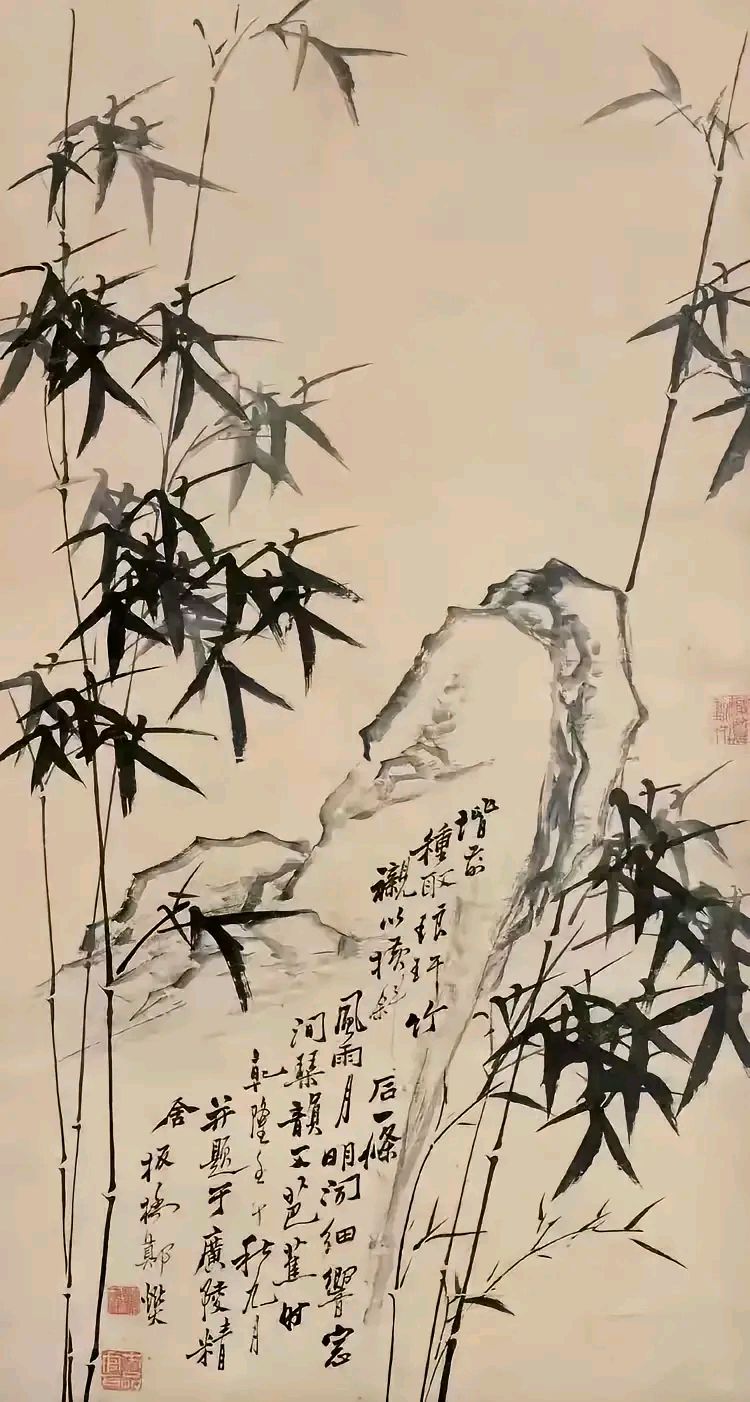 階前
種取琅玕竹
襯以橫斜
石一條
風雨月明間細響窓
間琴韻又芭蕉時
乾隆壬午秋九月
并題于廣陵精
舍板橋鄭燮